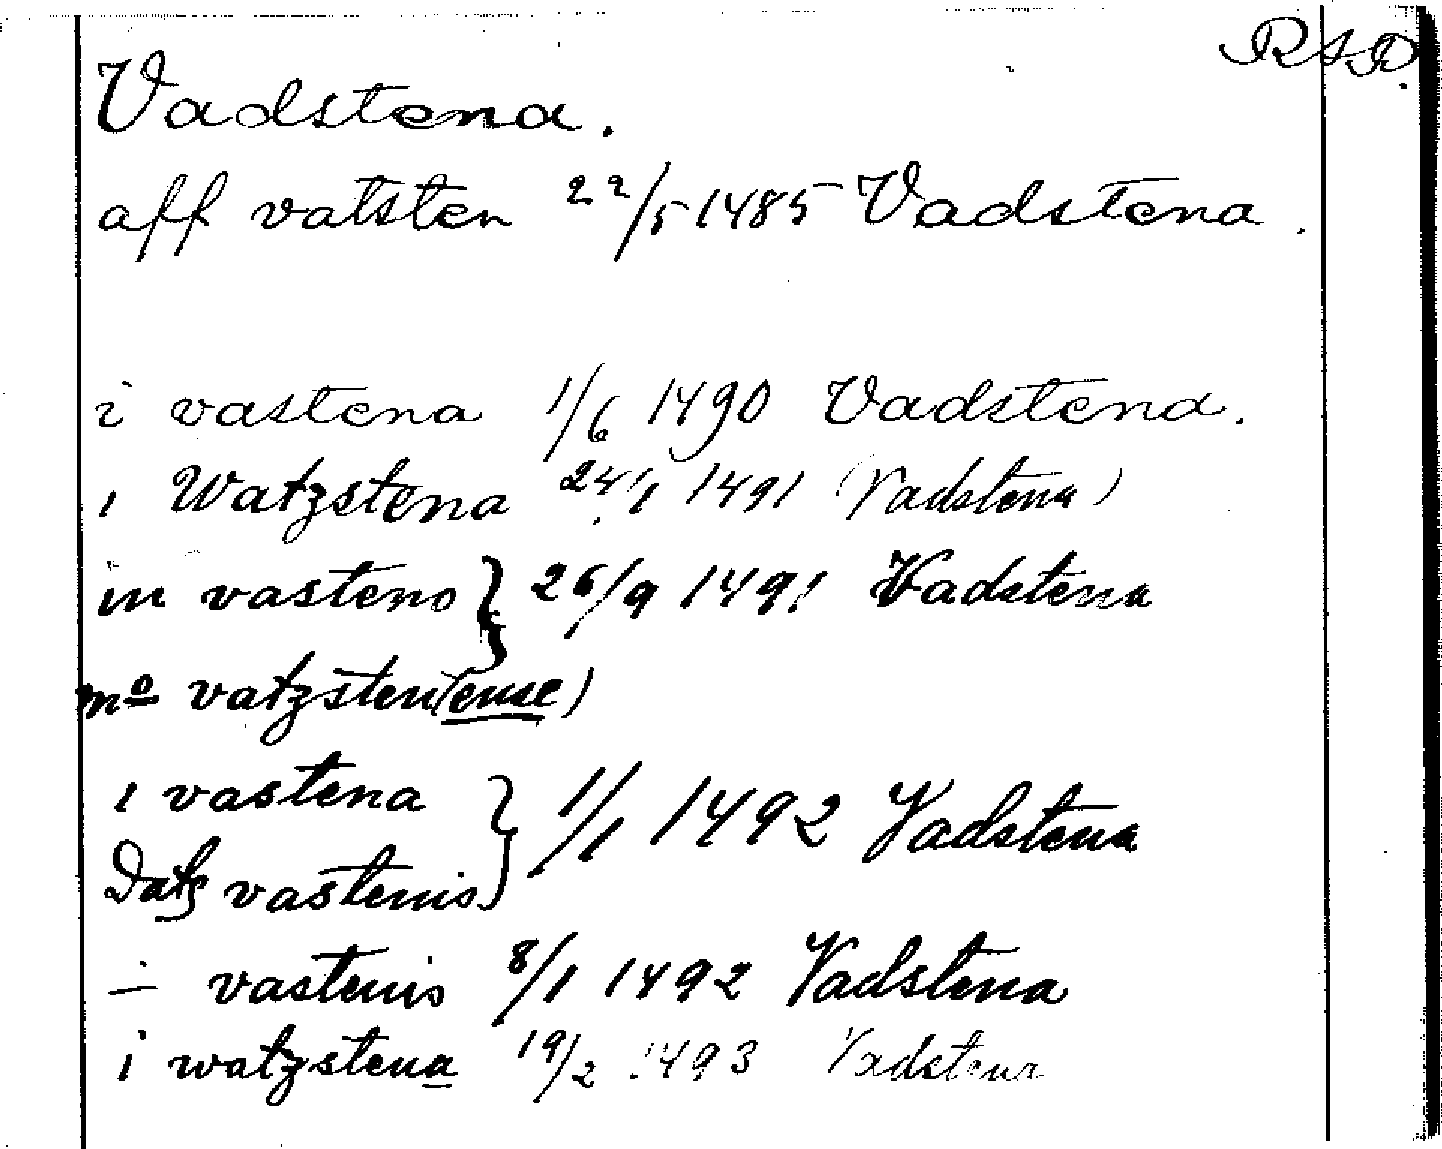 RAP.
Vadstena.
aff vatsten 22/5 1485 Vadstena.
i vastena 1/6 1490 Vadstena.
i Watzstena 24/1 1491 (Vadstena)
in vasteno } 26/9 1491 Vadstena
mo vatzsten(ense)
i vastena } 1/1 1492 Vadstena
Datz vastenis
÷ vastenis 8/1 1492 Vadstena
i watzstena 19/2 1493 Vadstena